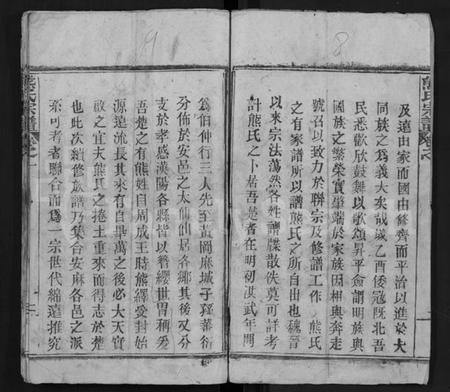 8
熊氏宗譜卷之
及遠由家而國由修齊而平治以進於大
同族之為義大矣哉歲乙酉倭寇既北吾
民悉歡欣鼓舞以歌頌昇平僉謂明族與
國族之繁榮實肇端於家族因相與奔走
號召以致力於聯宗及修譜工作 熊氏
之有家譜所以譜熊氏之所自出也魏晉
以來宗法蕩然各姓譜牒散佚莫可詳考
計熊氏之卜居吾楚者在明初洪武年間
9
為伯仲行三人先至黃岡麻城子孫蕃衍
分佈於安邑之太仙仙居各鄉其後又分
支於孝感漢陽各縣者以簪纓世冑稱焉
吾楚之有熊姓自周成王時熊繹受封始
源遠流長其來有自畢萬之後必大天實
啟之宜夫熊氏之捲土重來而得志於楚
也此次續修族譜乃集合安麻各邑之派
系可考者聯合而為一宗世代綿遠推究
熊氏宗譜卷之一